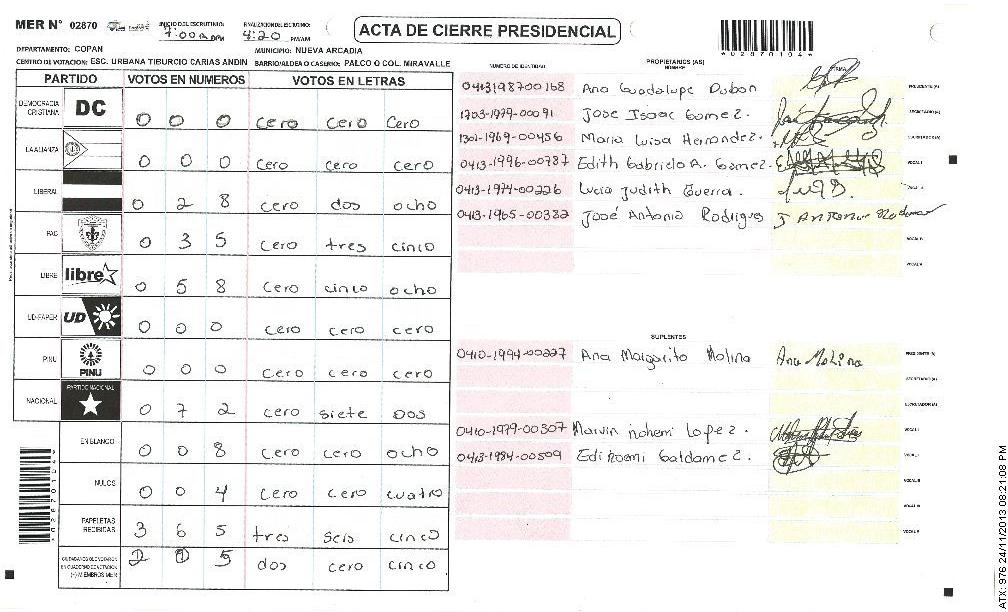 MER N° 02870
INICIO DEL ESCRUTINIO: 7:00 AM/PM
FINALIZACION DEL ESCRUTINIO: 4:20 PM/AM
ACTA DE CIERRE PRESIDENCIAL
*02870104*
DEPARTAMENTO: COPAN MUNICIPIO: NUEVA ARCADIA
CENTRO DE VOTACION: ESC. URBANA TIBURCIO CARIAS ANDIN BARRIO/ALDEA O CASERIO: PALCO O COL. MIRAVALLE
PARTIDO VOTOS EN NUMEROS VOTOS EN LETRAS
DEMOCRACIA CRISTIANA DC 0 0 0 cero cero cero
LA ALIANZA 0 0 0 cero cero cero
LIBERAL 0 2 8 cero dos ocho
PAC 0 3 5 cero tres cinco
LIBRE libre 0 5 8 cero cinco ocho
UD-FAPER UD 0 0 0 cero cero cero
PINU PINU 0 0 0 cero cero cero
NACIONAL PARTIDO NACIONAL 0 7 2 cero siete dos
EN BLANCO 0 0 8 cero cero ocho
NULOS 0 0 4 cero cero cuatro
PAPELETAS RECIBIDAS 3 6 5 tres seis cinco
CIUDADANOS QUE VOTARON EN CUADERNO DE VOTACION (+) MIEMBROS MER 2 0 5 dos cero cinco
NUMERO DE IDENTIDAD PROPIETARIOS (AS) NOMBRE FIRMA
0413198700168 Ana Guadalupe Dubon PRESIDENTE (A)
1703-1979-00091 Jose Isaac Gomez. SECRETARIO (A)
1301-1969-00456 Maria Luisa Hernandez. ESCRUTADOR (A)
0413-1996-00787 Edith Gabriela A. Gomez. VOCAL I
0413-1974-00226 Lucia Judith Guerra.
0413-1965-00382 José Antonio Rodrigues J Antonio Rodrigues
VOCAL III
VOCAL IV
SUPLENTES
0410-1994-00227 Ana Margarita Molina Ana Molina PRESIDENTE (A)
SECRETARIO (A)
ESCRUTADOR (A)
0410-1979-00307 Marvin Nohemi Lopez. VOCAL I
0413-1984-00509 Edi Noemi Galdamez.
VOCAL III
VOCAL IV
VOCAL V
*02870104*
ATX: 976 24/11/2013 08:21:08 PM